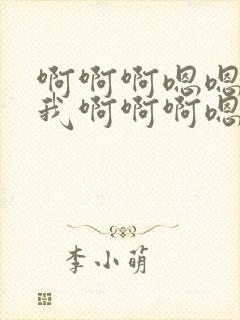 啊啊啊嗯嗯
我啊啊啊嗯
李小萌